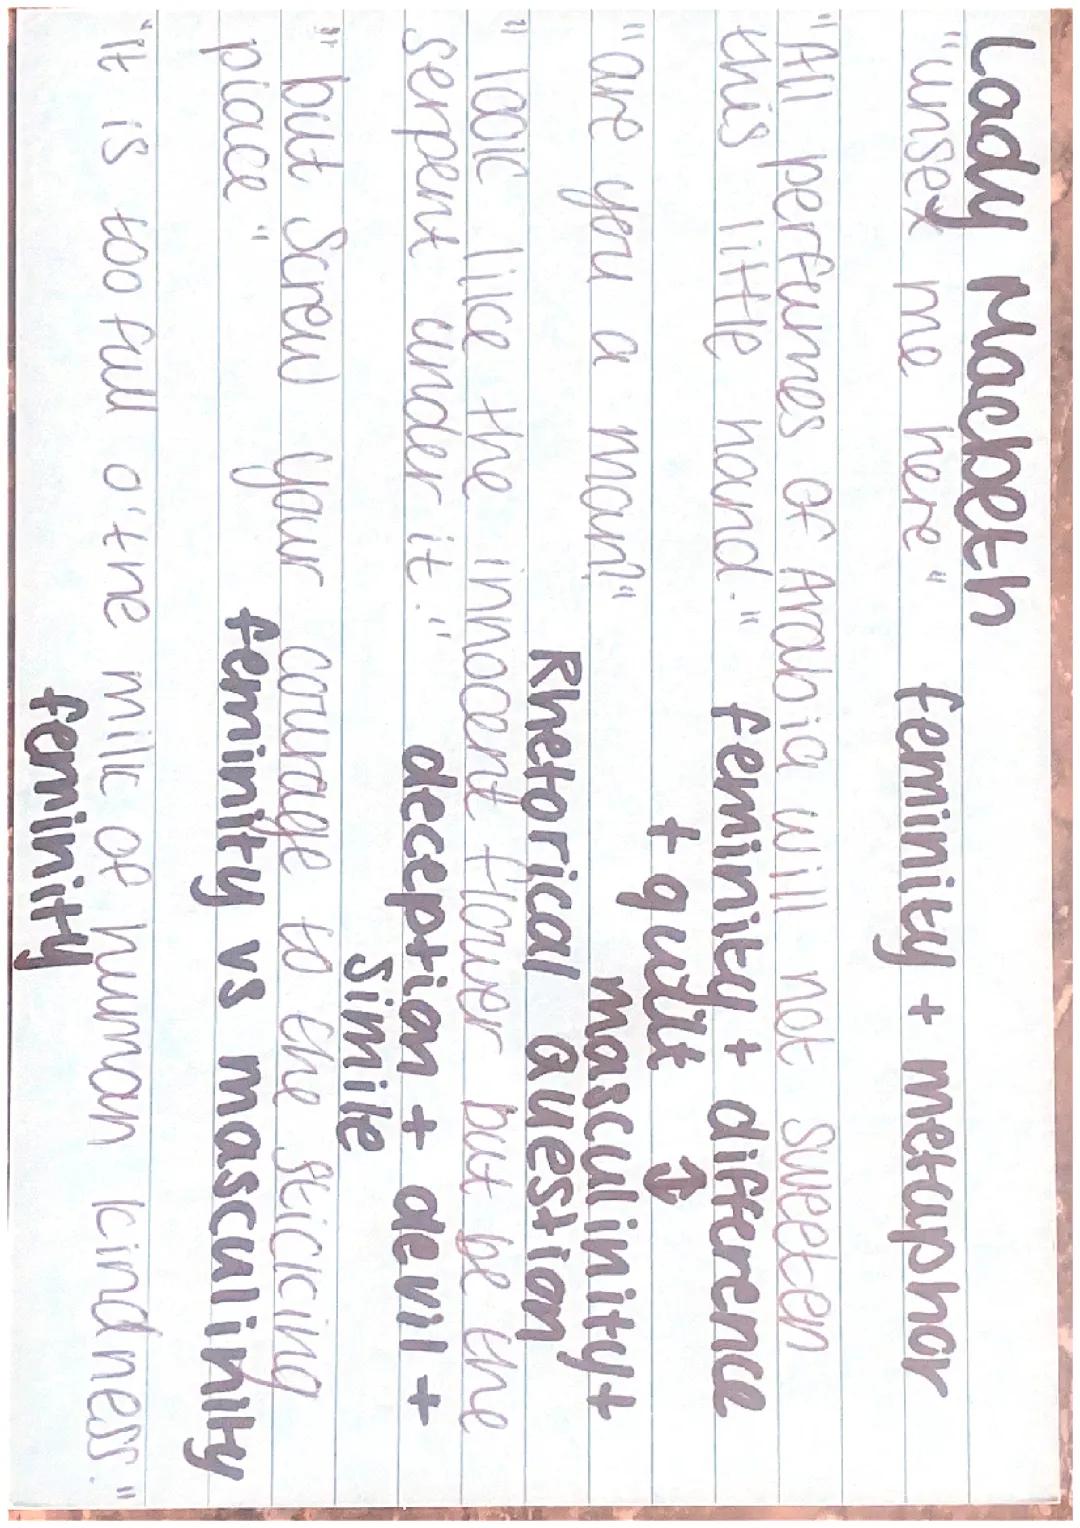 Lady Macbeth
"unsex me here" feminity + metaphor
"All perfumes of Arabia will not sweeten
this little hand." feminity + difference
+ guilt ↑
"are you a man?" masculinity +
Rhetorical question
"look like the innocent flower but be the
serpent under it." deception + devil +
simile
"but screw your courage to the sticking
place" feminity vs masculinity
"It is too full o'the milk of human kindness."
feminity